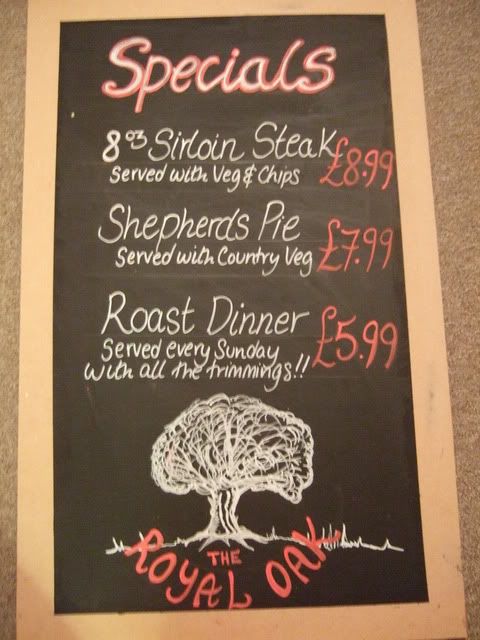 Specials
8oz Sirloin Steak £8.99
Served with Veg & Chips
Shepherds Pie £7.99
Served with Country Veg
Roast Dinner £5.99
Served every Sunday
with all the trimmings!!
THE
ROYAL OAK